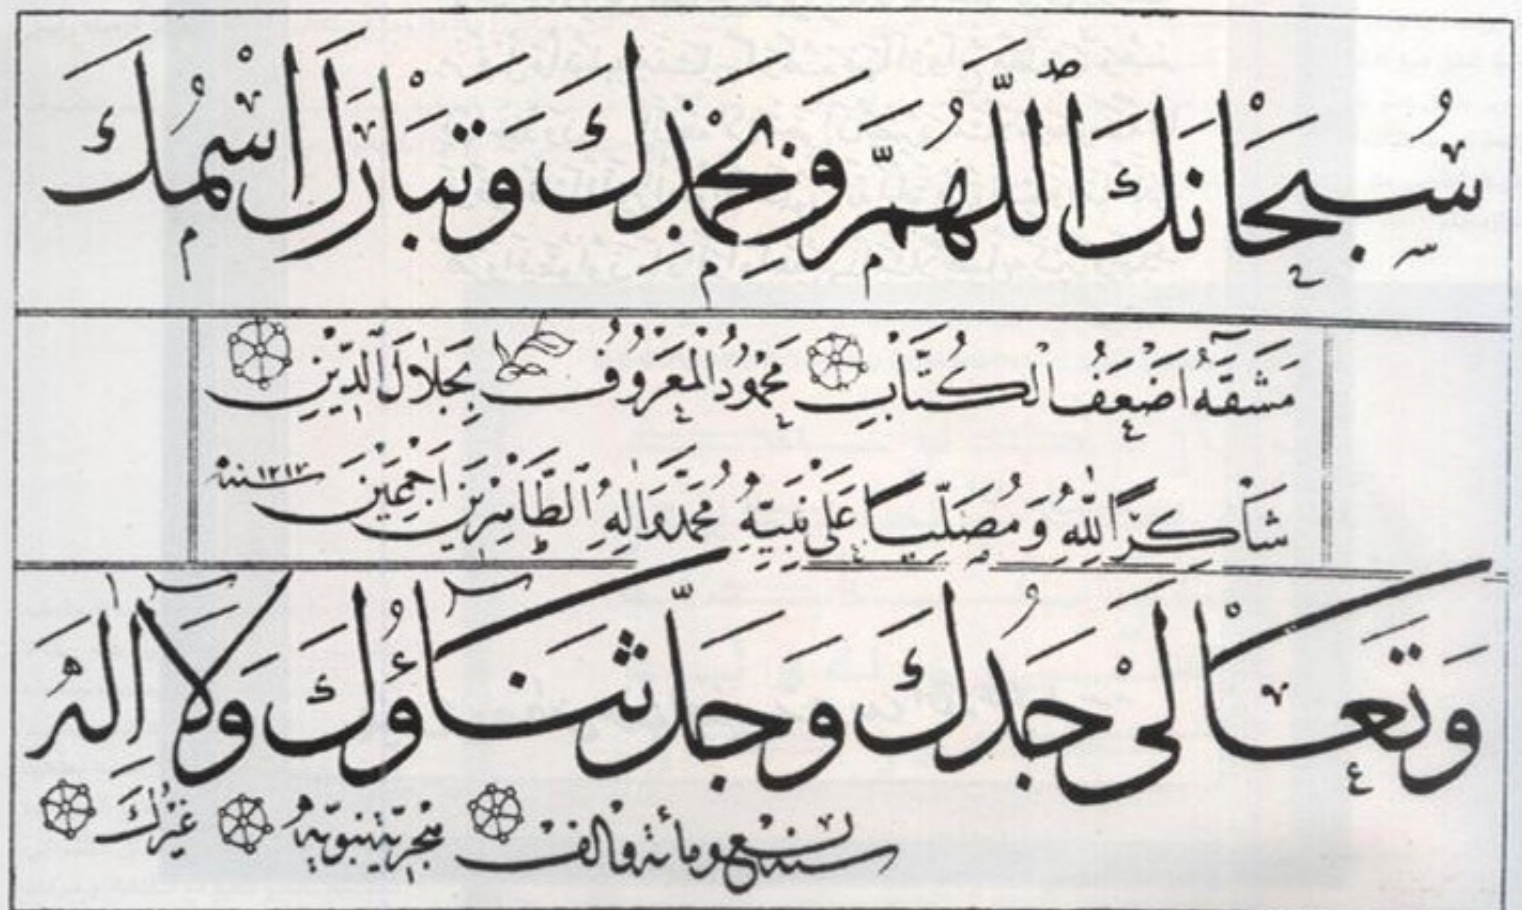 سُبْحَانَكَ اللّٰهُمَّ وَبِحَمْدِكَ وَتَبَارَكَ اسْمُكَ
مَشَقَهُ اَضْعَفُ الْكُتَّابِ مَحْمُودُ الْمَعْرُوفُ بِجَلَالِ الدِّينِ
شَاكِرًا لِلّٰهِ وَمُصَلِّيًا عَلٰى نَبِيِّهِ مُحَمَّدٍ وَاٰلِهِ الطَّاهِرِينَ اَجْمَعِينَ سنة ١٢١٧
وَتَعَالٰى جَدُّكَ وَجَلَّ ثَنَاؤُكَ وَلَا اِلٰهَ
غَيْرُكَ سنة تسع ومائة والف هجرية نبوية